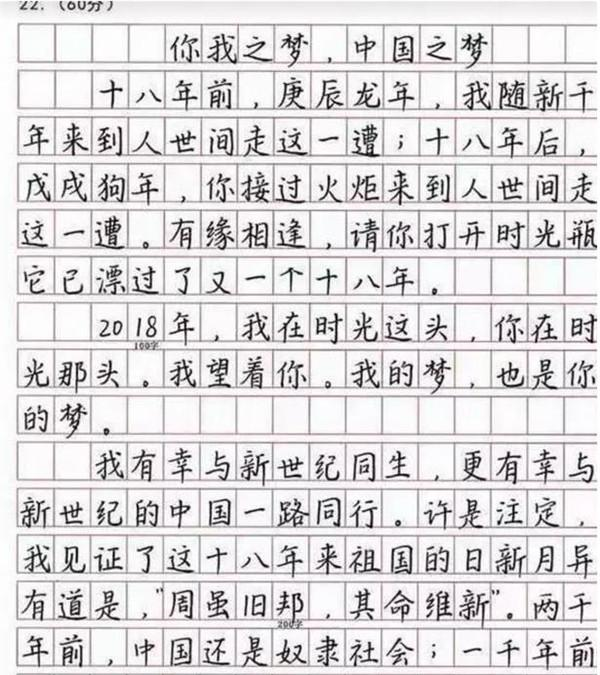 22.（60分）
你我之梦，中国之梦
十八年前，庚辰龙年，我随新千
年来到人世间走这一遭；十八年后，
戊戌狗年，你接过火炬来到人世间走
这一遭。有缘相逢，请你打开时光瓶
它已漂过了又一个十八年。
2018年，我在时光这头，你在时
100字
光那头。我望着你。我的梦，也是你
的梦。
我有幸与新世纪同生，更有幸与
新世纪的中国一路同行。许是注定，
我见证了这十八年来祖国的日新月异
有道是，“周虽旧邦，其命维新”。两千
200字
年前，中国还是奴隶社会；一千年前